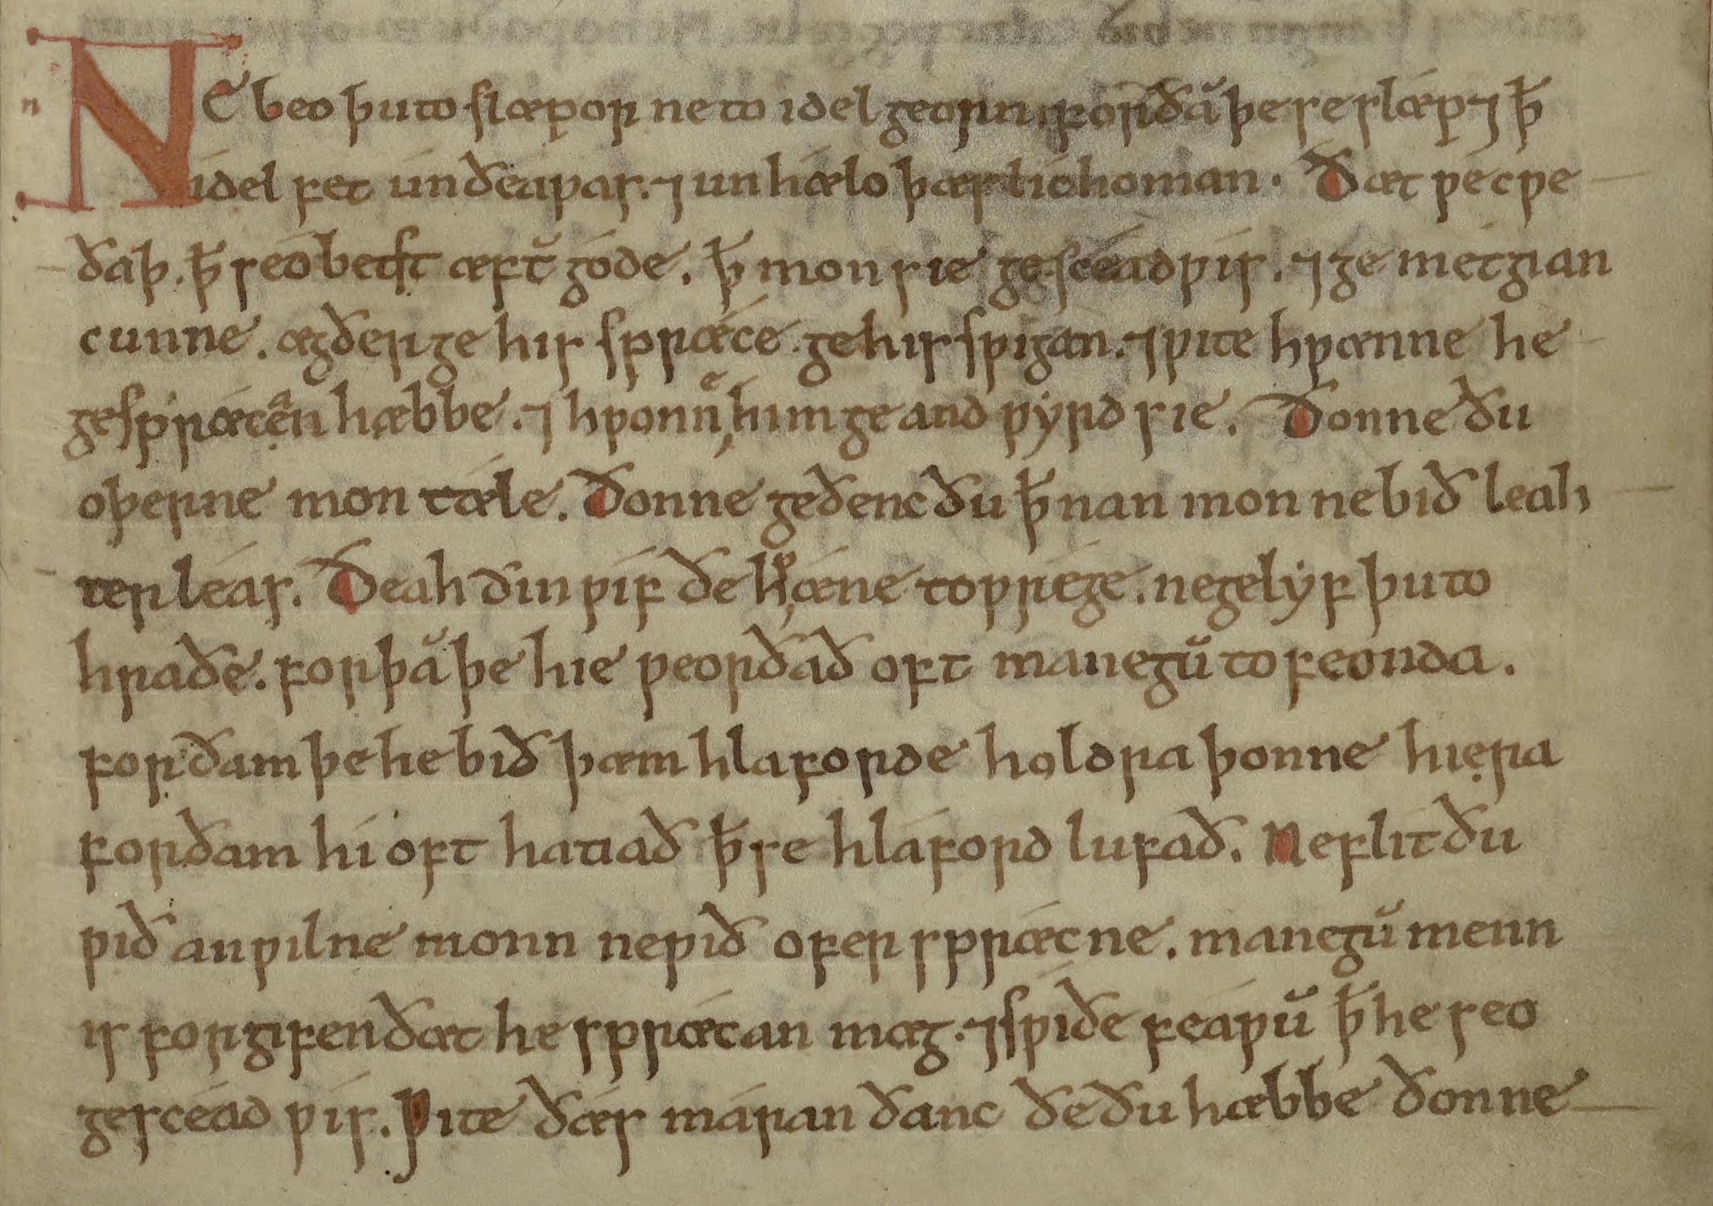 NE beo þu to slæpor ne to idel georn forðā þe se slæp ⁊ ꝥ
idel fet unðeawas. ⁊ unhælo þæs lichoman. Ðæt we cwe
ðaþ. ꝥ seo betst æft̄ gode. ꝥ mon sie gesceadwis. ⁊ gemetgian
cunne. ægðer ge his spræce. ge his swigan. ⁊ wite hwænne he
gespræcen hæbbe. ⁊ hwonn̄e him geandwyrd sie. Ðonne ðu
oþerne mon tæle. Ðonne geðenc ðu ꝥ nan mon ne bið leah
ter leas. Ðeah ðin wif ðe hwæne to wrege. ne gelyf þu to
hraðe. forþā þe hie weorðað oft manegū to feonda.
forðam þe he bið þæm hlaforde holdra þonne hiera
forðam hi oft hatiað ꝥ se hlaford lufað. Ne flit ðu
wið anwilne monn ne wið ofer spræcne. manegū menn
is forgifen ðæt he spræcan mæg. ⁊ swiðe feawū ꝥ he seo
gesceadwis. Wite ðæs maran ðanc ðe ðu hæbbe ðonne